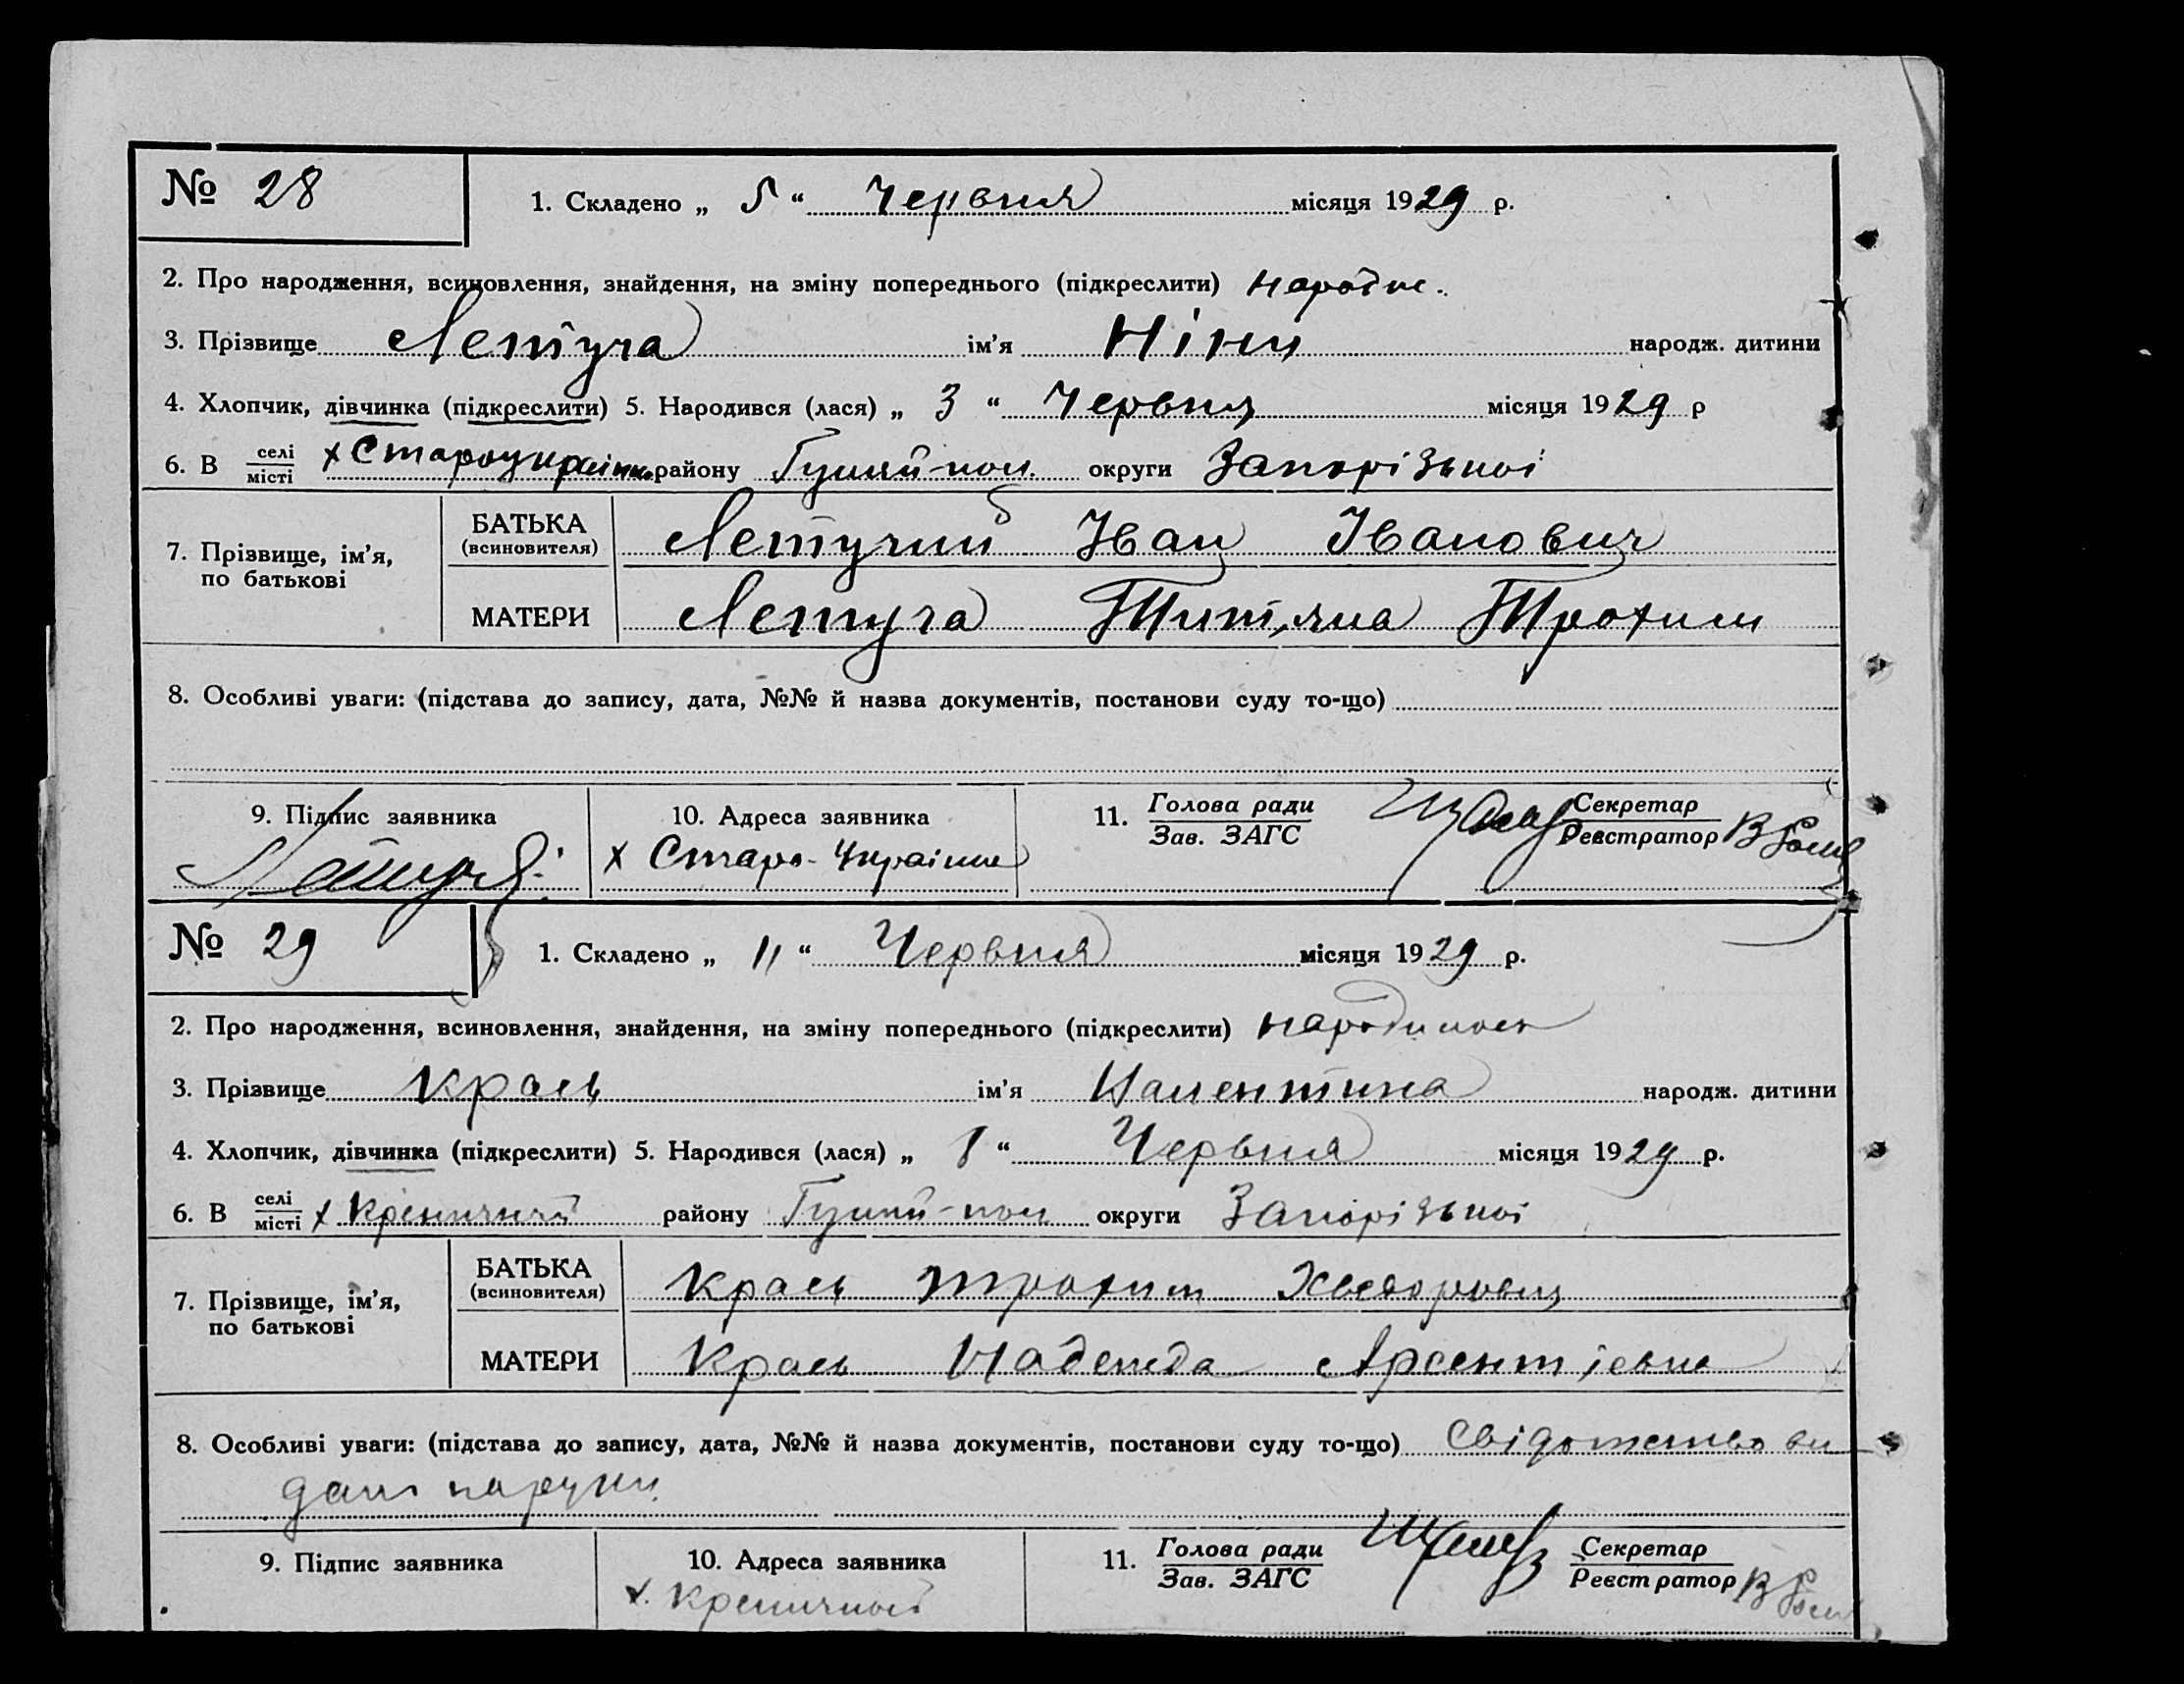 № 28 1. Складено „ 5 “ Червня місяця 1929 р.
2. Про народження, всиновлення, знайдення, на зміну попереднього (підкреслити) народже.
3. Прізвище Летуча ім’я Ніни народж. дитини
4. Хлопчик, дівчинка (підкреслити) 5. Народився (лася) „ 3 “ Червня місяця 1929 р
6. В селі/місті х Староукраїнка району Гуляй-пол. округи Запорізької
7. Прізвище, ім’я, по батькові
БАТЬКА (всиновителя) Летучий Іван Іванович
МАТЕРИ Летуча Тит,яна Трохим
8. Особливі уваги: (підстава до запису, дата, №№ й назва документів, постанови суду то-що)
9. Підпис заявника 10. Адреса заявника 11. Голова ради/Зав. ЗАГС Секретар/Реєстратор
х Старо-Україне
№ 29 1. Складено „ 11 “ Червня місяця 1929 р.
2. Про народження, всиновлення, знайдення, на зміну попереднього (підкреслити)
3. Прізвище Краль ім’я Валентина народж. дитини
4. Хлопчик, дівчинка (підкреслити) 5. Народився (лася) „ “ Червня місяця 1929 р.
6. В селі/місті х району Гуляй-пол округи Запорізької
7. Прізвище, ім’я, по батькові
БАТЬКА (всиновителя) Краль Трохим Хведорович
МАТЕРИ Краль Надежда Арсентіевна
8. Особливі уваги: (підстава до запису, дата, №№ й назва документів, постанови суду то-що) Свідотство ви
дано на руки
9. Підпис заявника 10. Адреса заявника 11. Голова ради/Зав. ЗАГС Секретар/Реєстратор